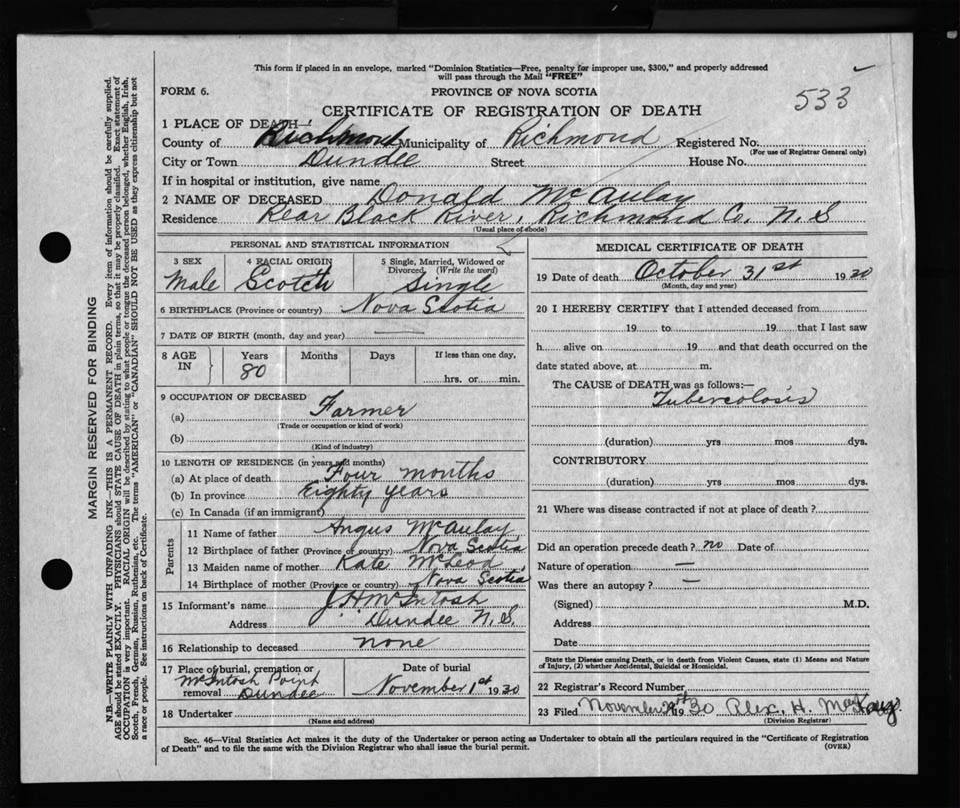 This form if placed in an envelope, marked "Dominion Statistics—Free, penalty for improper use, $300," and properly addressed
will pass through the Mail "FREE"
FORM 6.
PROVINCE OF NOVA SCOTIA
533
CERTIFICATE OF REGISTRATION OF DEATH
1 PLACE OF DEATH—
County of Richmond Municipality of Richmond Registered No.
(For use of Registrar General only)
City or Town Dundee Street House No.
If in hospital or institution, give name
2 NAME OF DECEASED Donald McAulay
Residence Rear Black River, Richmond Co. N. S
(Usual place of abode)
PERSONAL AND STATISTICAL INFORMATION
3 SEX 4 RACIAL ORIGIN 5 Single, Married, Widowed or
Divorced, (Write the word)
Male Scotch Single
6 BIRTHPLACE (Province or country) Nova Scotia
7 DATE OF BIRTH (month, day and year) —
8 AGE IN Years Months Days If less than one day,
80 hrs. or min.
9 OCCUPATION OF DECEASED
(a) Farmer
(Trade or occupation or kind of work)
(b)
(Kind of industry)
10 LENGTH OF RESIDENCE (in years and months)
(a) At place of death Four months
(b) In province Eighty years
(c) In Canada (if an immigrant)
Parents
11 Name of father Angus McAulay
12 Birthplace of father (Province or country) Nova Scotia
13 Maiden name of mother Kate McLeod
14 Birthplace of mother (Province or country) Nova Scotia
15 Informant's name J. H. McIntosh
Address Dundee N.S.
16 Relationship to deceased none
17 Place of burial, cremation or Date of burial
McIntosh Point
removal Dundee November 1st 1930
18 Undertaker
(Name and address)
MEDICAL CERTIFICATE OF DEATH
19 Date of death October 31st 1930
(Month, day and year)
20 I HEREBY CERTIFY that I attended deceased from
19 to 19 that I last saw
h alive on 19 and that death occurred on the
date stated above, at m.
The CAUSE OF DEATH was as follows:—
Tubercolosis
(duration) yrs mos dys.
CONTRIBUTORY
(duration) yrs. mos. dys.
21 Where was disease contracted if not at place of death?
Did an operation precede death? no Date of
Nature of operation —
Was there an autopsy? —
(Signed) M.D.
Address
Date
State the Disease causing Death, or in death from Violent Causes, state (1) Means and Nature
of Injury, (2) whether Accidental, Suicidal or Homicidal.
22 Registrar's Record Number
23 Filed November 1930 Alex. H.
(Division Registrar)
Sec. 46—Vital Statistics Act makes it the duty of the Undertaker or person acting as Undertaker to obtain all the particulars required in the "Certificate of Registration
of Death" and to file the same with the Division Registrar who shall issue the burial permit.
(OVER)
MARGIN RESERVED FOR BINDING
N.B.—WRITE PLAINLY WITH UNFADING INK—THIS IS A PERMANENT RECORD. Every item of information should be carefully supplied.
AGE should be stated EXACTLY. PHYSICIANS should STATE CAUSE OF DEATH in plain terms, so that it may be properly classified. Exact statement of
OCCUPATION is very important. RACIAL ORIGIN will be described by stating to what people or tongue the deceased person belonged, whether English, Irish,
Scotch, French, German, Russian, Ruthenian, etc. The terms "AMERICAN" or "CANADIAN" SHOULD NOT BE USED as they express citizenship but not
a race or people. See instructions on back of Certificate.